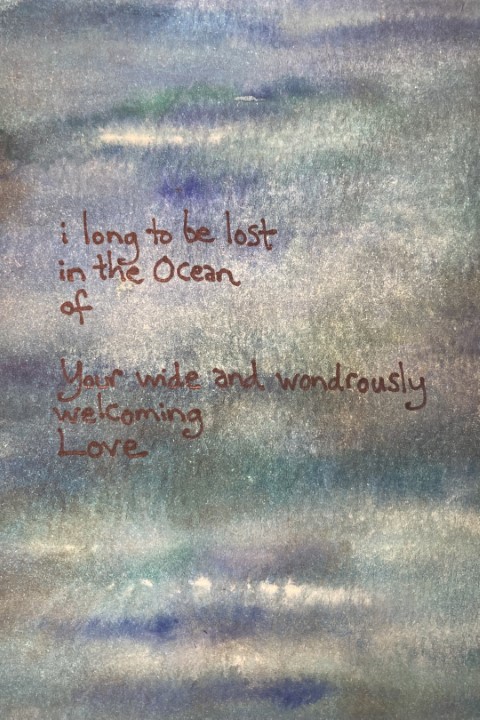 i long to be lost
in the Ocean
of
Your wide and wondrously
welcoming
Love